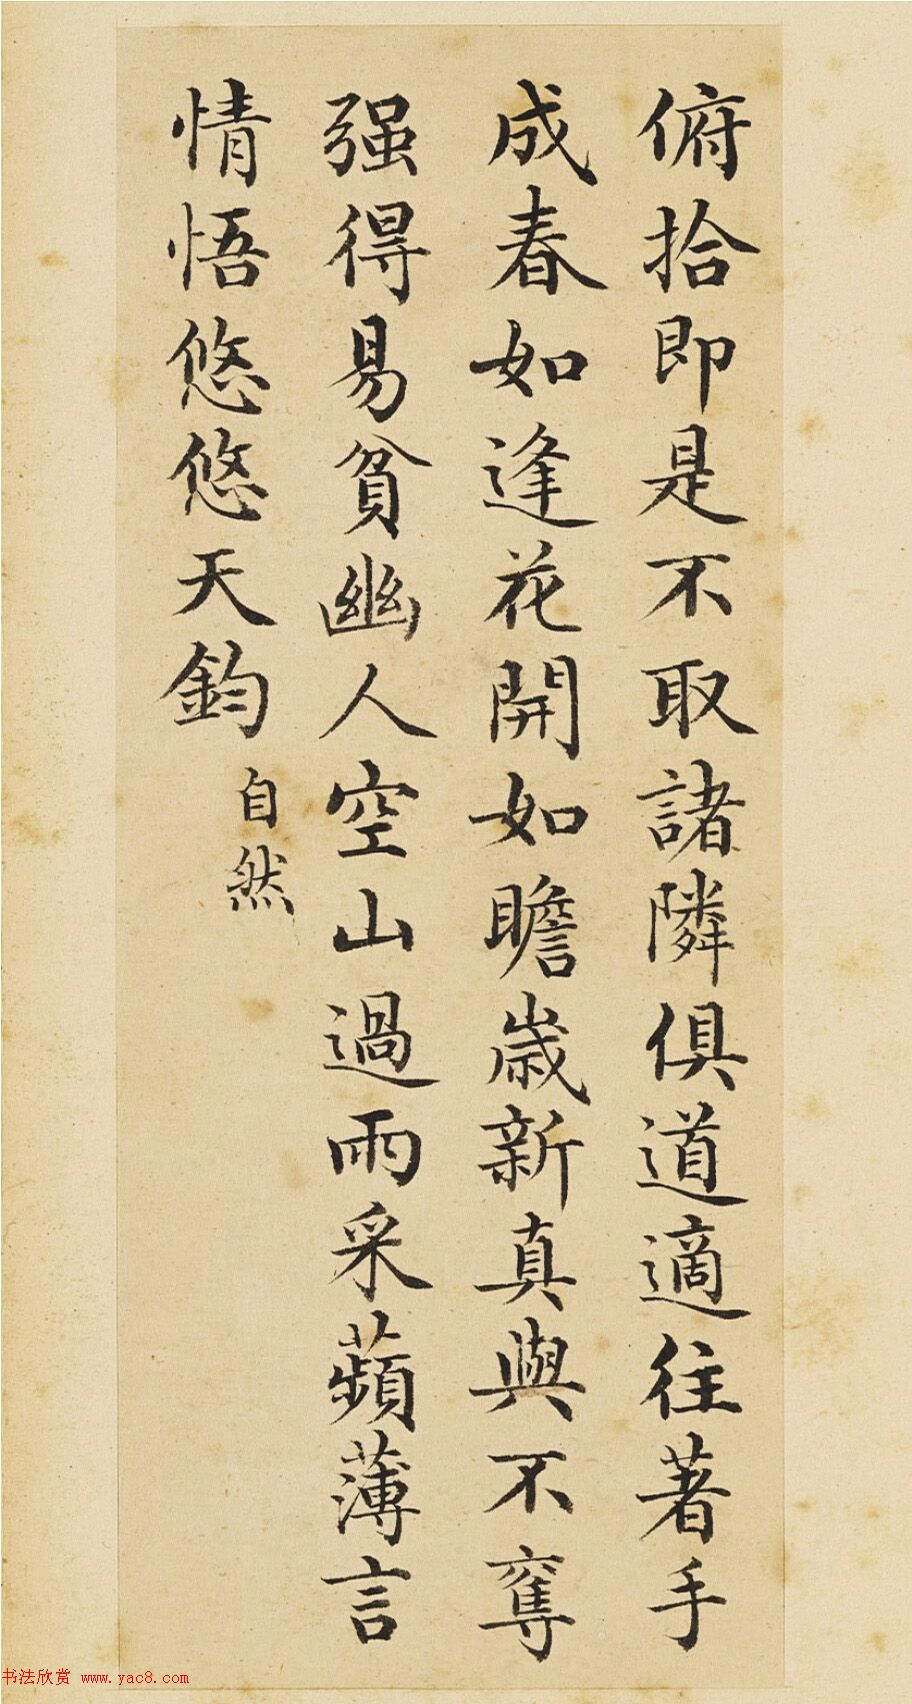 俯拾即是不取諸隣俱道適往著手
成春如逢花開如瞻歲新真與不奪
强得易貧幽人空山過雨采蘋薄言
情悟悠悠天鈞
自然
书法欣赏 www.yac8.com